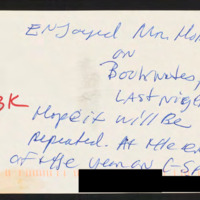 ENJoyed Mr. Ho
on
Booknotes,
LAST Nig
BK
Hope it will Be
repeated. At the en
of the year on C-SP